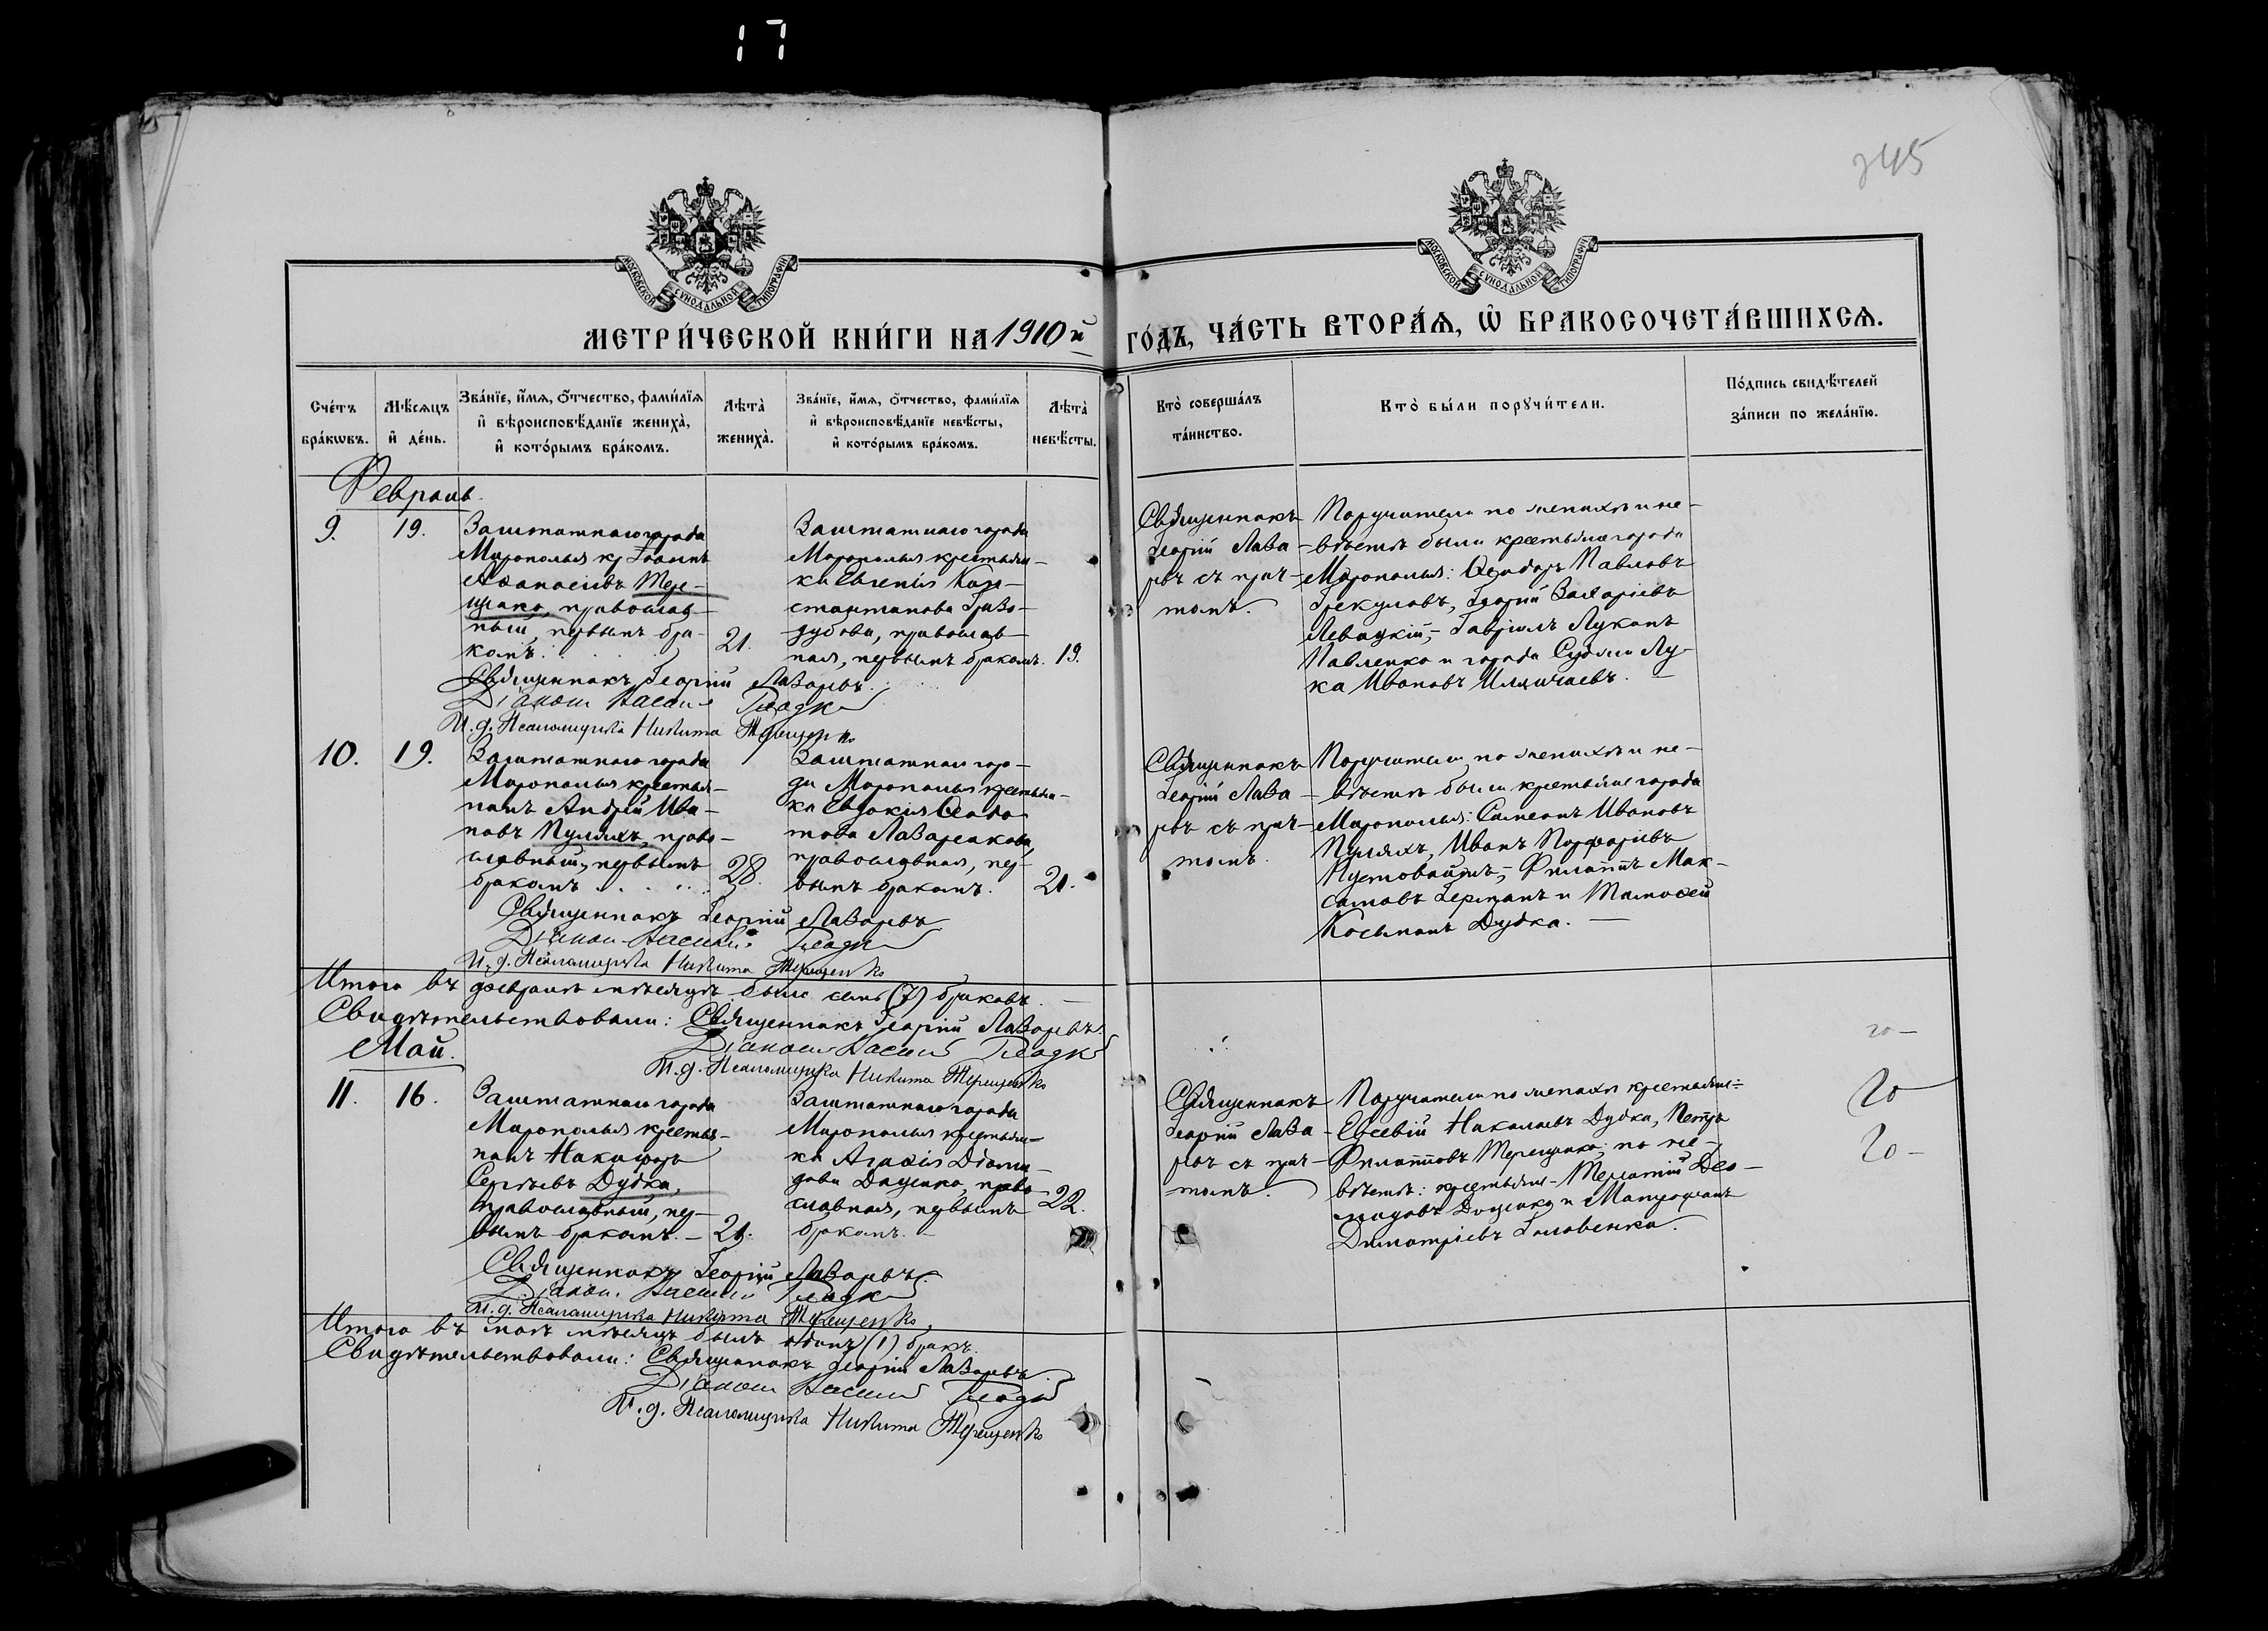 17
245
МОСКОВСКОЙ СѴНОДАЛЬНОЙ ТИПОГРАФІИ
МОСКОВСКОЙ СѴНОДАЛЬНОЙ ТИПОГРАФІИ
МЕТРИ́ЧЕСКОЙ КНИ́ГИ НА 1910й ГО́ДЪ, ЧА́СТЬ ВТОРА́Ѧ, Ѡ҆ БРАКОСОЧЕТА́ВШИХСѦ.
Сче́тъ бра́кωвъ.
Мѣ́сѧцъ и҆ де́нь.
Зва́нїе, и҆́мѧ, ѻ҆́тчество, фами́лїѧ
и҆ вѣроисповѣ́данїе жениха̀,
и҆ кото́рымъ бра́комъ.
Лѣта̀ жениха̀.
Зва́нїе, и҆́мѧ, ѻ҆́тчество, фами́лїѧ
и҆ вѣроисповѣ́данїе невѣ́сты,
и҆ кото́рымъ бра́комъ.
Лѣта̀ невѣ́сты.
Кто̀ соверша́лъ
та́инство.
Кто̀ бы́ли порꙋчи́тели.
По́дпись свидѣ́телей
за́писи по жела́нїю.
Февраль.
9.
19.
Заштатнаго города
Мирополья кр. Іоаннъ
Аѳанасіевъ Тере-
щенко, православ-
ный, первымъ бра-
комъ.
21.
Заштатнаго города
Мирополья крестьян-
ка Евгенія Кон-
стантинова Гриво-
зубова, православ-
ная, первымъ бракомъ.
19.
Священникъ
Георгій Лаза-
ревъ съ прич-
томъ.
Поручители по женихѣ и не-
вѣстѣ были крестьяне города
Мирополья: Ѳеодоръ Павловъ
Грекуловъ, Георгій Захаріевъ
Левицкій, Гавріилъ Лукинъ
Павленко и города Суджи Лу-
ка Ивановъ
Священникъ Георгій Лазаревъ.
Діаконъ Василій Гладкій
И. д. Псаломщика Никита Терещенко
10.
19.
Заштатнаго города
Мирополья крестья-
нинъ Андрей Ива-
новъ Пуляхъ, право-
славный, первымъ
бракомъ
28.
Заштатнаго горо-
да Мирополья крестьян-
ка Евдокія Ѳеодо
това Лазаренкова,
православная, пер-
вымъ бракомъ.
21.
Священникъ
Георгій Лаза-
ревъ съ прич-
томъ.
Поручители по женихѣ и не-
вѣстѣ были крестьяне города
Мирополья: Симеонъ Ивановъ
Пуляхъ, Иванъ Порфиріевъ
Филиппъ Мак-
симовъ Германъ и Тимоѳей
Косьминъ Дудка.
Священникъ Георгій Лазаревъ
Діаконъ Василій Гладкій
И. д. Псаломщика Никита Терещенко
Итого въ февралѣ мѣсяцѣ было семь (7) браковъ.
Свидѣтельствовали: Священникъ Георгій Лазаревъ.
Діаконъ Василій Гладкій
И. д. Псаломщика Никита Терещенко
Май.
11.
16.
Заштатнаго города
Мирополья крестья-
нинъ Никифоръ
Сергѣевъ Дудка,
православный, пер-
вымъ бракомъ.
21.
Заштатнаго города
Мирополья крестьян-
ка Агаѳія Діоми-
дова Доценко, право-
славная, первымъ
бракомъ.
22.
Священникъ
Георгій Лаза-
ревъ съ прич-
томъ.
Поручители по женихѣ крестьяне:
Евсевій Николаевъ Дудка, Петръ
Филипповъ Терещенко; по не-
вѣстѣ: крестьяне Терентій Діо-
мидовъ Доценко и Митрофанъ
Димитріевъ Головенко.
Священникъ Георгій Лазаревъ.
Діаконъ Василій Гладкій
И. д. Псаломщика Никита Терещенко.
Итого въ маѣ мѣсяцѣ былъ одинъ (1) бракъ.
Свидѣтельствовали: Священникъ Георгій Лазаревъ.
Діаконъ Василій Гладкій
И. д. Псаломщика Никита Терещенко